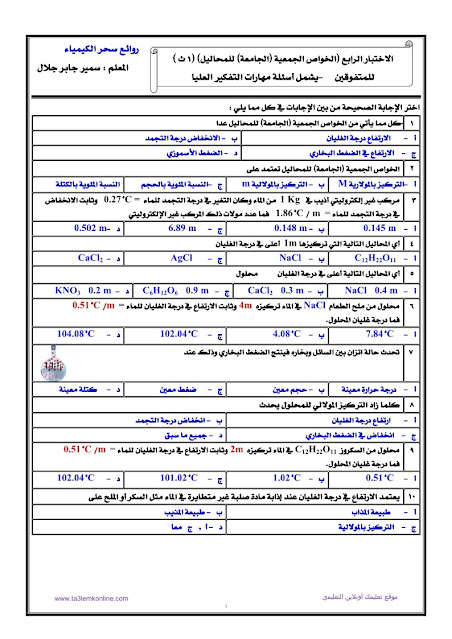 روائع سحر الكيمياء
المعلم : سمير جابر جلال
الاختبار الرابع (الخواص الجمعية (الجامعة) للمحاليل) (١ ث )
للمتفوقين - يشمل أسئلة مهارات التفكير العليا
اختر الإجابة الصحيحة من بين الإجابات في كل مما يلي :
١ كل مما يأتي من الخواص الجمعية (الجامعة) للمحاليل عدا
أ - الارتفاع في درجة الغليان ب - الانخفاض درجة التجمد
ج - الارتفاع في الضغط البخاري د - الضغط الأسموزي
٢ الخواص الجمعية (الجامعة) للمحاليل تعتمد على
أ - التركيز بالمولارية M ب - التركيز بالمولالية m ج - النسبة المئوية بالحجم النسبة المئوية بالكتلة
٣ مركب غير إلكتروليتي أذيب في 1 Kg من الماء وكان التغير في درجة التجمد للماء = 0.27°C وثابت الانخفاض
في درجة التجمد للماء = 1.86°C / m فما عدد مولات ذلك المركب غير الإلكتروليتي
أ - 0.145 m ب - 0.148 m ج - 6.89 m د - 0.502 m
٤ أي المحاليل التالية التي تركيزها 1m أعلى في درجة الغليان
أ - C₁₂H₂₂O₁₁ ب - NaCl ج - AgCl د - CaCl₂
٥ أي المحاليل التالية أعلى في درجة الغليان محلول
أ - NaCl 0.4 m ب - CaCl₂ 0.3 m ج - C₆H₁₂O₆ 0.9 m د - KNO₃ 0.2 m
٦ محلول من ملح الطعام NaCl في الماء تركيزه 4m وثابت الارتفاع في درجة الغليان للماء = 0.51°C /m
فما درجة غليان المحلول.
أ - 7.84°C ب - 4.08°C ج - 102.04°C د - 104.08°C
٧ تحدث حالة اتزان بين السائل وبخاره فينتج الضغط البخاري وذلك عند
أ - درجة حرارة معينة ب - حجم معين ج - ضغط معين د - كتلة معينة
٨ كلما زاد التركيز المولالي للمحلول يحدث
أ - ارتفاع درجة الغليان ب - انخفاض درجة التجمد
ج - انخفاض في الضغط البخاري د - جميع ما سبق
٩ محلول من السكروز C₁₂H₂₂O₁₁ في الماء تركيزه 2m وثابت الارتفاع في درجة الغليان للماء = 0.51°C /m
فما درجة غليان المحلول.
أ - 0.51°C ب - 1.02°C ج - 101.02°C د - 102.04°C
١٠ يعتمد الارتفاع في درجة الغليان عند إذابة مادة صلبة غير متطايرة في الماء مثل السكر أو الملح على
أ - طبيعة المذاب ب - طبيعة المذيب
ج - التركيز بالمولالية د - أ , ج معا
www.ta3lemkonline.com موقع تعليمك أونلاين التعليمي
١